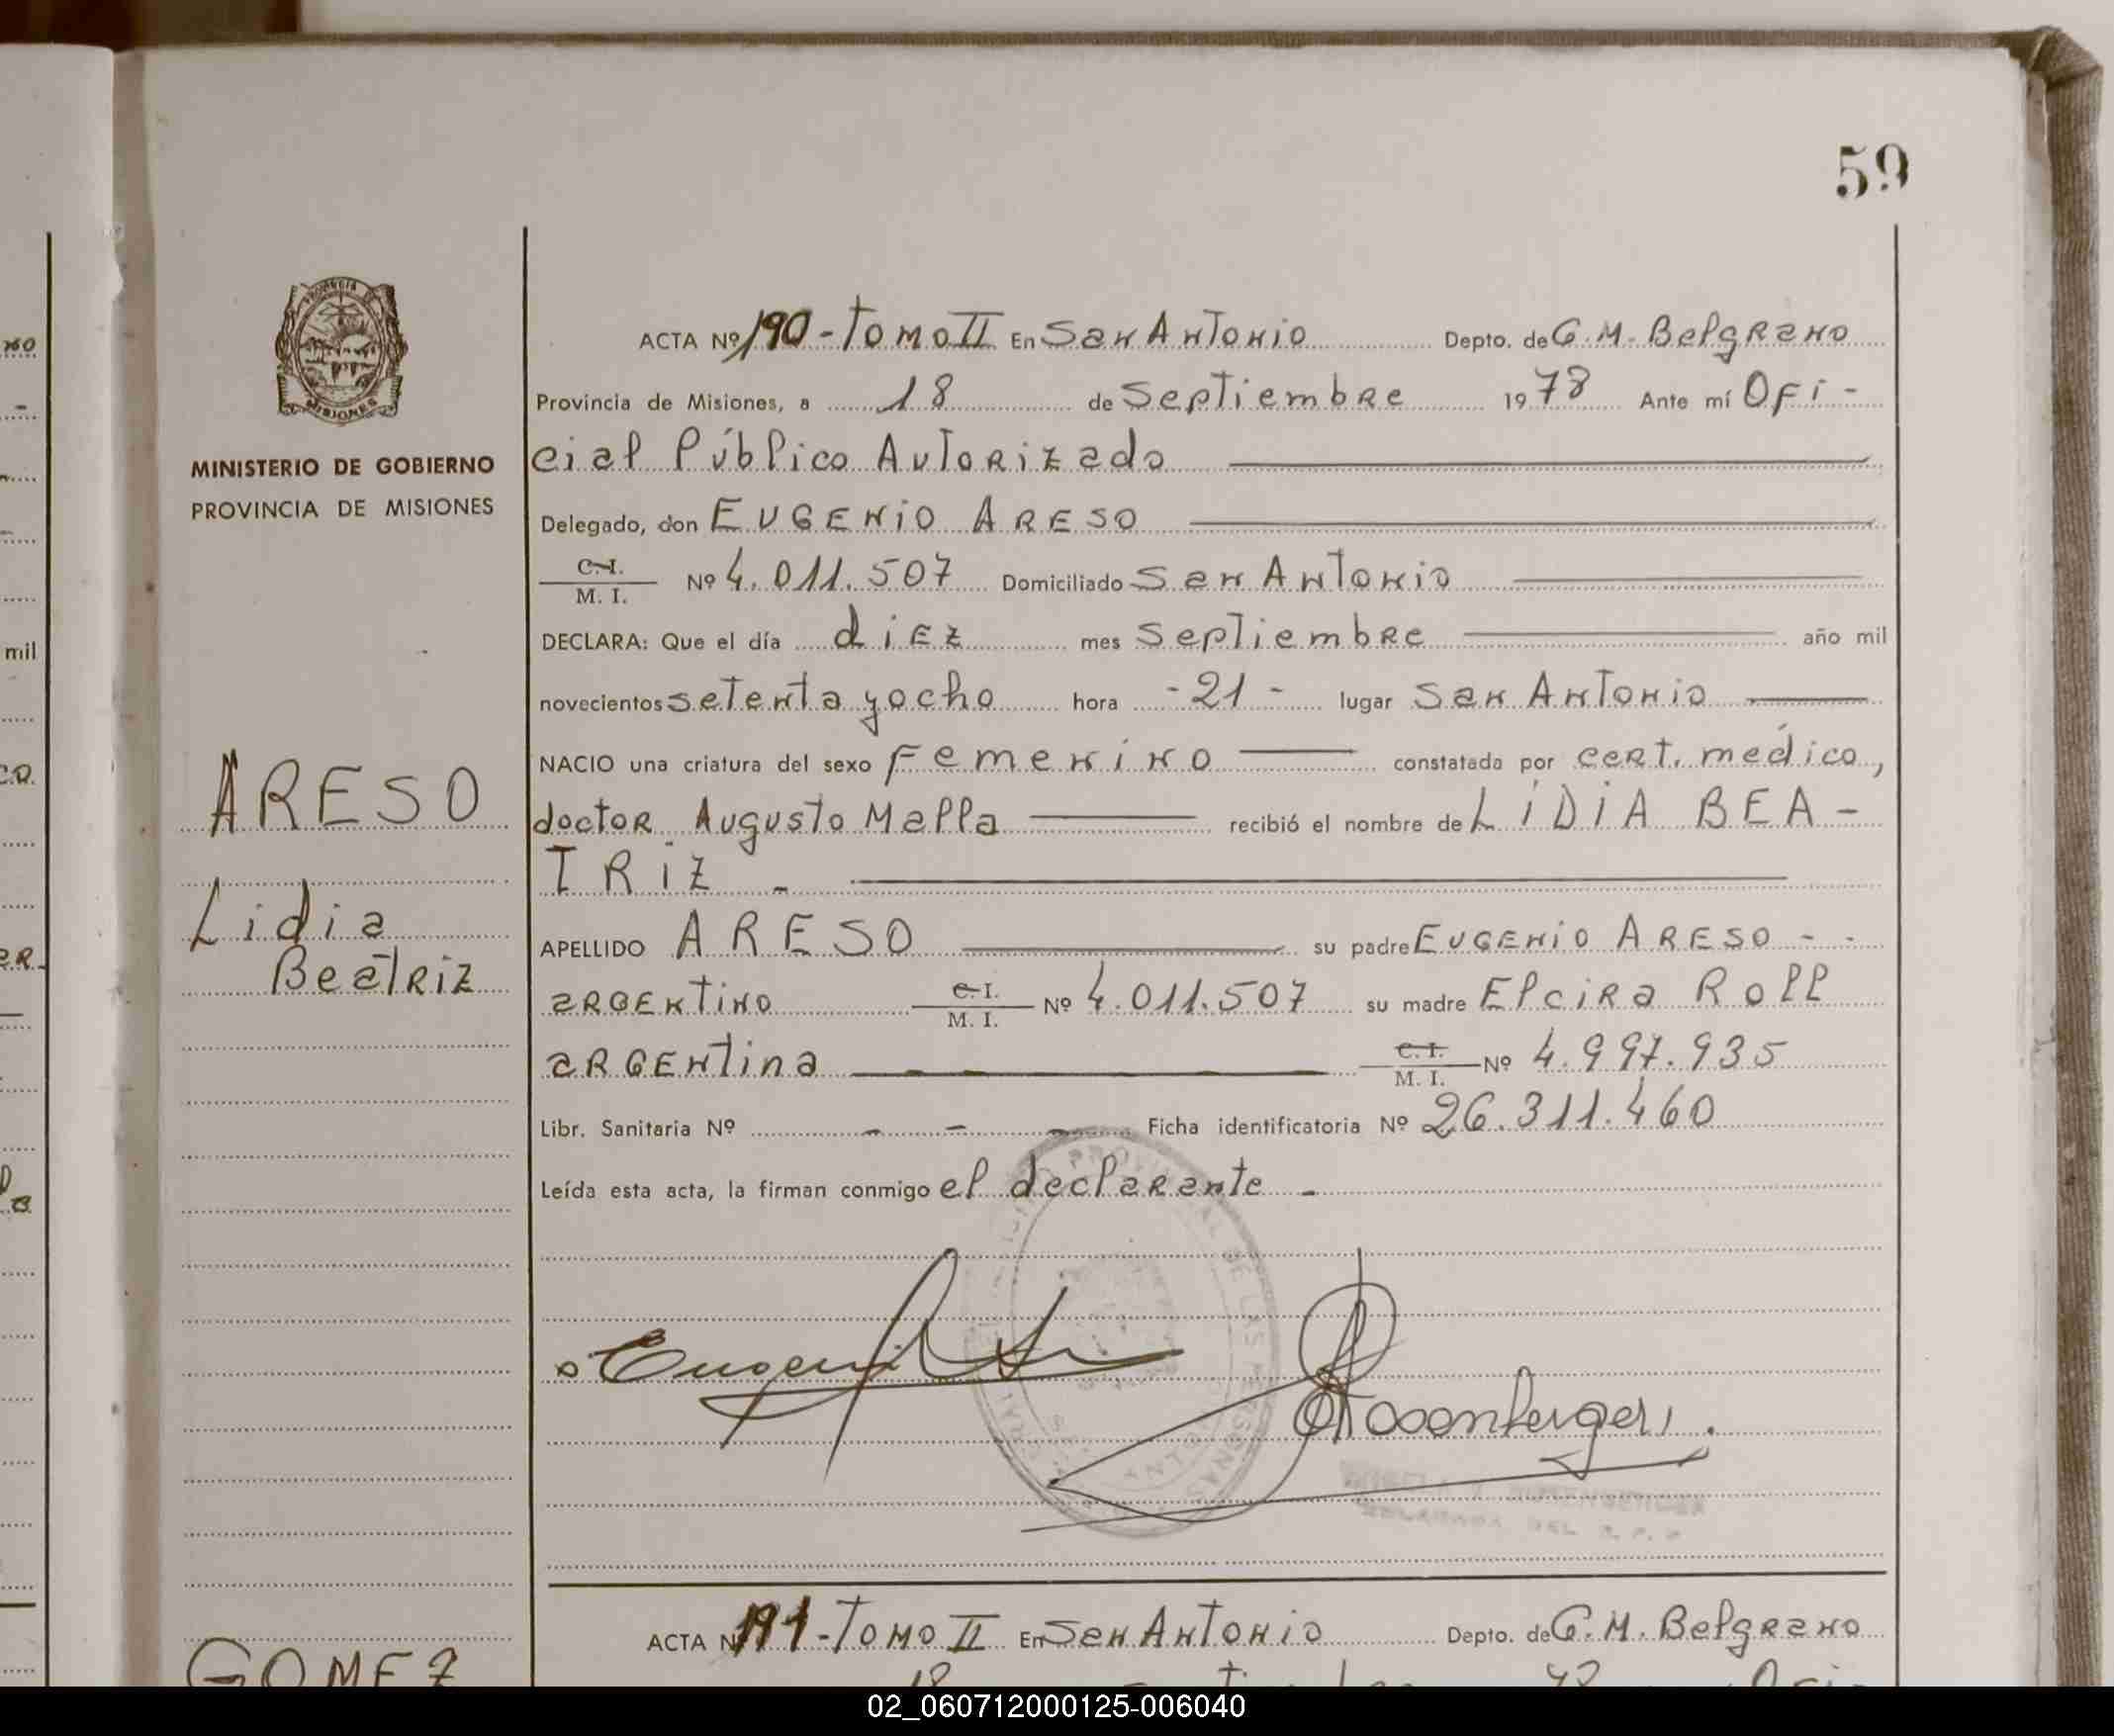 59
PROVINCIA DE
MISIONES
MINISTERIO DE GOBIERNO
PROVINCIA DE MISIONES
ARESO
Lidia
Beatriz
ACTA Nº 190 - Tomo II En San Antonio Depto. de G. M. Belgrano
Provincia de Misiones, a 18 de Septiembre 1978 Ante mí Ofi-
cial Público Autorizado
Delegado, don EUGENIO ARESO
C. I.
M. I. Nº 4.011.507 Domiciliado San Antonio
DECLARA: Que el día diez mes Septiembre año mil
novecientos setenta y ocho hora - 21 - lugar San Antonio
NACIO una criatura del sexo Femenino constatada por cert. médico,
doctor Augusto Malla recibió el nombre de LIDIA BEA-
TRIZ -
APELLIDO ARESO su padre EUGENIO ARESO - -
argentino C. I.
M. I. Nº 4.011.507 su madre Elcira Roll
argentina C. I.
M. I. Nº 4.997.935
Libr. Sanitaria Nº - - - Ficha identificatoria Nº 26.311.460
Leída esta acta, la firman conmigo el declarante -
ACTA Nº 191 - Tomo II En San Antonio Depto. de G. M. Belgrano
GOMEZ
no
mil
02_060712000125-006040